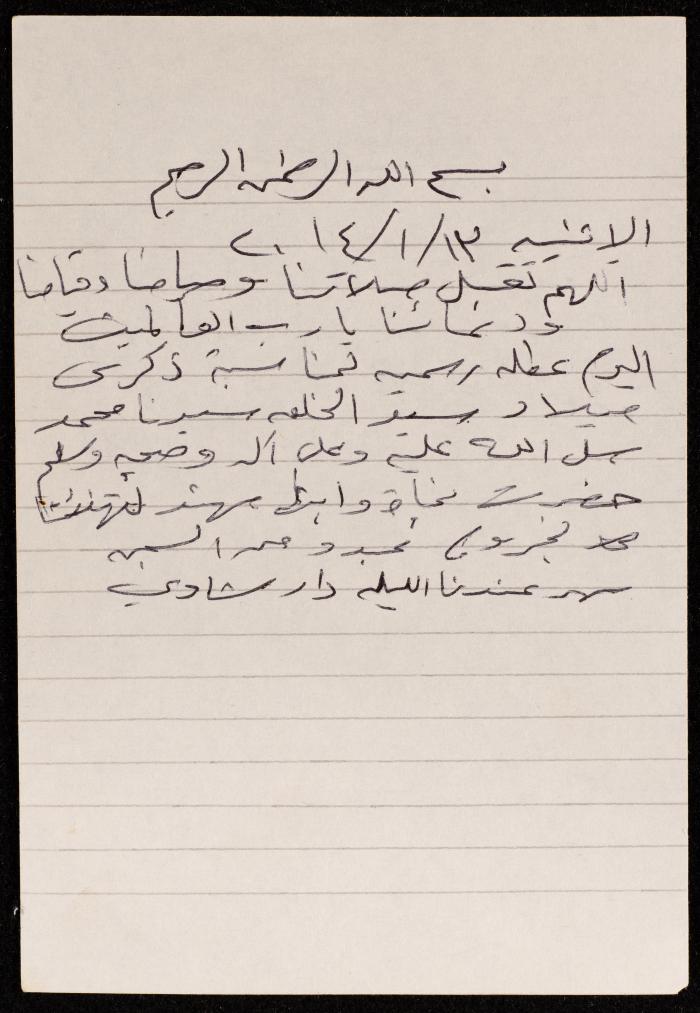 بسم الله الرحمن الرحيم
الاثنين ١٣/١/٢٠١٤
اللهم تقبل صلاتنا وصيامنا وقيامنا
ودعائنا يا رب العالمين
اليوم عطله رسميه بمناسبة ذكرى
ميلاد سيد الخلق سيدنا محمد
صلى الله عليه وعلى آله وصحبه وسلم
حضرت نجاة وابنها مهند لتهنئتنا
بخروج عبدو من السجن
سهر عندنا الليله دار شادي